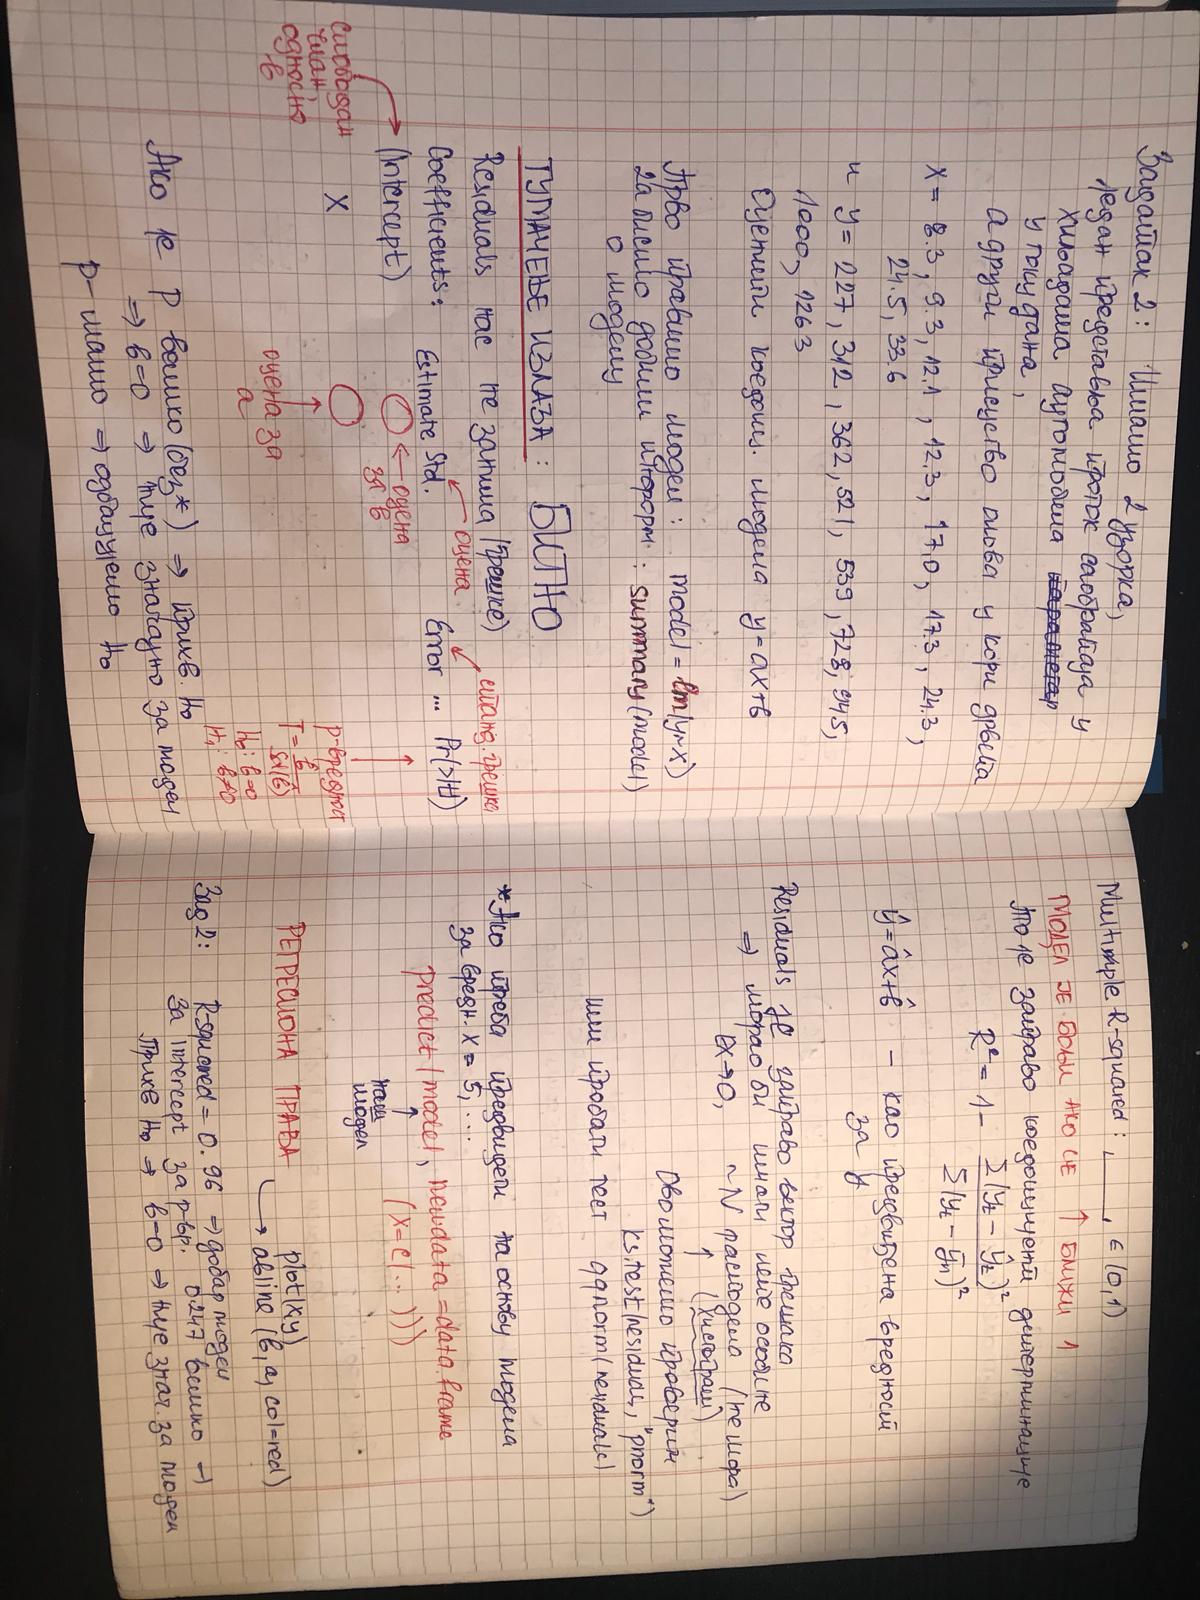 Задатак 2: Имамо 2 узорка,
један представља проток саобраћаја у
хиљадама аутомобила
у току дана,
а други присуство олова у кори дрвећа
X = 8.3, 9.3, 12.1, 12.3, 17.0, 17.3, 24.3,
24.5, 33.6
и y = 227, 312, 362, 521, 539, 728, 945,
1000, 1263
Оценити коефиц. модела y=ax+b
Прво правимо модел: model = lm(y~x)
Да бисмо добили информ.: summary(model)
о моделу
ТУМАЧЕЊЕ ИЗЛАЗА: БИТНО
Residuals нас не занима (грешке)
Coefficients: Estimate Std. Error ... Pr(>|t|)
оцена
станд. грешка
слободан
члан,
односно
b
(Intercept)
оцена
за b
X
оцена за
a
p-вредност
T = b̂ / sd(b̂)
H₀: b=0
H₁: b≠0
Ако је p велико (без *) ⇒ прихв. H₀
⇒ b=0 ⇒ није значајно за модел
p-мало ⇒ одбацујемо H₀
Multiple R-squared: ____, ∈(0,1)
МОДЕЛ ЈЕ БОЉИ АКО ЈЕ ↑ БЛИЖИ 1
То је заправо коефицијент детерминације
R² = 1 - Σ(yᵢ - ŷᵢ)² / Σ(yᵢ - ȳₙ)²
ŷ = âx+b̂ - као предвиђена вредност
за y
Residuals је заправо вектор грешака
⇒ морао би имати неке особине
EX→0, ~N расподела (не мора)
↑ (хистограм)
Ово можемо проверити
ks.test(residuals, "pnorm")
или пробати тест qqnorm(residuals)
*Ако треба предвидети на основу модела
за вредн. x = 5, ...
predict(model, newdata = data.frame
(x=c(...)))
наш
модел
РЕГРЕСИОНА ПРАВА
plot(x,y)
abline(b,a,col=red)
Зад 2: R-squared = 0.96 ⇒ добар модел
За Intercept за p-вр. 0.247 велико →
Прихв H₀ ⇒ b=0 → није знач. за модел